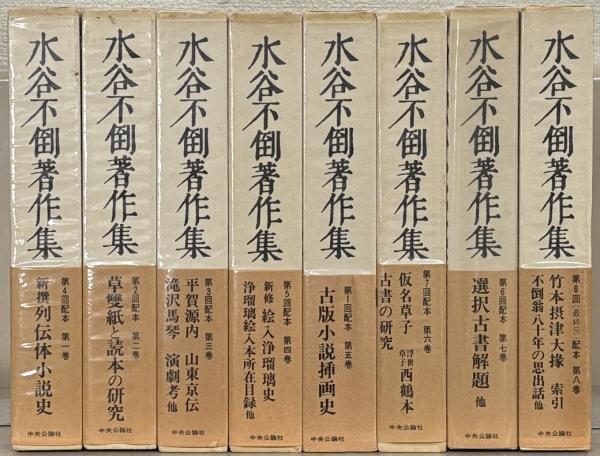 水谷不倒著作集
第4回配本 第一巻
新撰列伝体小説史
中央公論社
水谷不倒著作集
第2回配本 第二巻
草雙紙と読本の研究
中央公論社
水谷不倒著作集
第3回配本 第三巻
平賀源内 山東京伝
滝沢馬琴 演劇考他
中央公論社
水谷不倒著作集
第5回配本 第四巻
新修 絵入浄瑠璃史
浄瑠璃絵入本所在目録他
中央公論社
水谷不倒著作集
第1回配本 第五巻
古版小説挿画史
中央公論社
水谷不倒著作集
第7回配本 第六巻
仮名草子 浮世草子 西鶴本
古書の研究
中央公論社
水谷不倒著作集
第6回配本 第七巻
選択古書解題 他
中央公論社
水谷不倒著作集
第8回(最終回)配本 第八巻
竹本摂津大掾 索引
不倒翁八十年の思出話他
中央公論社